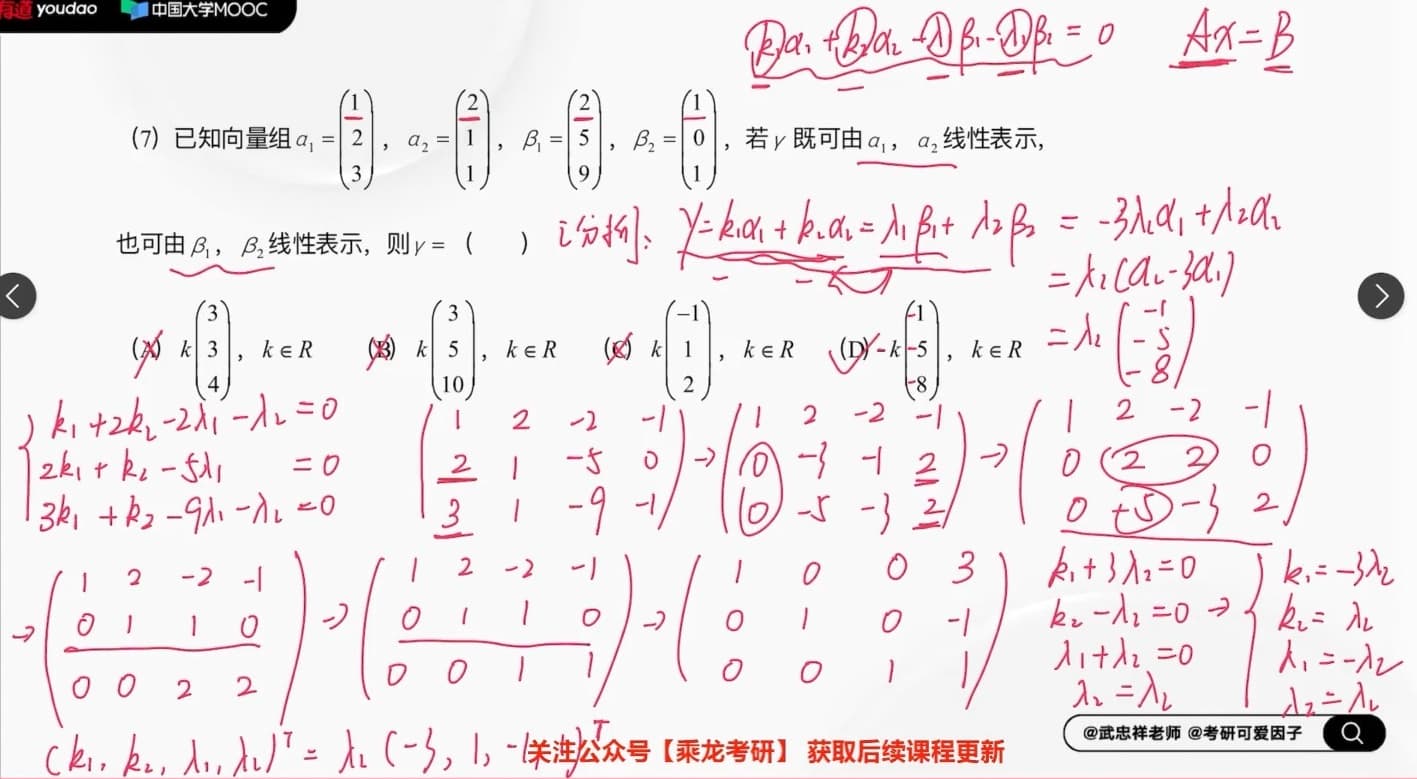 有道 youdao 中国大学MOOC
k₁α₁ + k₂α₂ - λ₁β₁ - λ₂β₂ = 0 Ax = B
(7) 已知向量组 α₁ = (1 2 3), α₂ = (2 1 1), β₁ = (2 5 9), β₂ = (1 0 1), 若 γ 既可由 α₁, α₂ 线性表示,
也可由 β₁, β₂ 线性表示, 则 γ = ( )
[分析]: γ = k₁α₁ + k₂α₂ = λ₁β₁ + λ₂β₂ = -3λ₂α₁ + λ₂α₂
= λ₂(α₂ - 3α₁)
= λ₂ (-1 -5 -8)
(A) k (3 3 4), k ∈ R (B) k (3 5 10), k ∈ R (C) k (-1 1 2), k ∈ R (D) -k (-1 -5 -8), k ∈ R
k₁ + 2k₂ - 2λ₁ - λ₂ = 0
2k₁ + k₂ - 5λ₁ = 0
3k₁ + k₂ - 9λ₁ - λ₂ = 0
(1 2 -2 -1
2 1 -5 0
3 1 -9 -1)
→ (1 2 -2 -1
0 -3 -1 2
0 -5 -3 2)
→ (1 2 -2 -1
0 2 2 0
0 +5 -3 2)
→ (1 2 -2 -1
0 1 1 0
0 0 2 2)
→ (1 2 -2 -1
0 1 1 0
0 0 1 1)
→ (1 0 0 3
0 1 0 -1
0 0 1 1)
k₁ + 3λ₂ = 0
k₂ - λ₂ = 0 →
λ₁ + λ₂ = 0
λ₂ = λ₂
k₁ = -3λ₂
k₂ = λ₂
λ₁ = -λ₂
λ₂ = λ₂
(k₁, k₂, λ₁, λ₂)ᵀ = λ₂ (-3, 1, -1, 1)ᵀ
关注公众号【乘龙考研】 获取后续课程更新
@武忠祥老师 @考研可爱因子